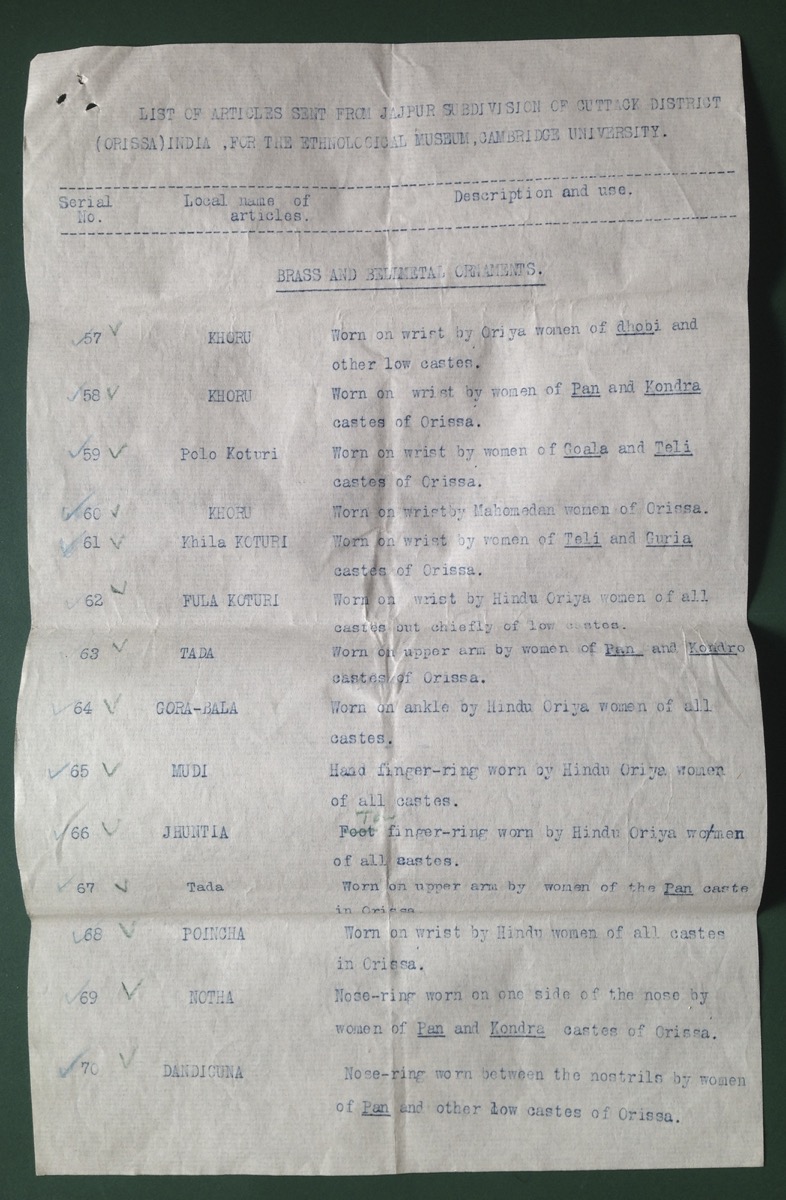 LIST OF ARTICLES SENT FROM JAJPUR SUBDIVISION OF CUTTACK DISTRICT
(ORISSA)INDIA ,FOR THE ETHNOLOGICAL MUSEUM,CAMBRIDGE UNIVERSITY.
Serial No. Local name of articles. Description and use.
BRASS AND BELLMETAL ORNAMENTS.
57 KHORU Worn on wrist by Oriya women of dhobi and
other low castes.
58 KHORU Worn on wrist by women of Pan and Kondra
castes of Orissa.
59 Polo Koturi Worn on wrist by women of Goala and Teli
castes of Orissa.
60 KHORU Worn on wristby Mahomedan women of Orissa.
61 Khila KOTURI Worn on wrist by women of Teli and Guria
castes of Orissa.
62 FULA KOTURI Worn on wrist by Hindu Oriya women of all
castes but chiefly of low castes.
63 TADA Worn on upper arm by women of Pan and Kondro
castes of Orissa.
64 GORA-BALA Worn on ankle by Hindu Oriya women of all
castes.
65 MUDI Hand finger-ring worn by Hindu Oriya women
of all castes.
66 JHUNTIA Foot finger-ring worn by Hindu Oriya women
of all castes.
67 Tada Worn on upper arm by women of the Pan caste
in Orissa.
68 POINCHA Worn on wrist by Hindu women of all castes
in Orissa.
69 NOTHA Nose-ring worn on one side of the nose by
women of Pan and Kondra castes of Orissa.
70 DANDIGUNA Nose-ring worn between the nostrils by women
of Pan and other low castes of Orissa.